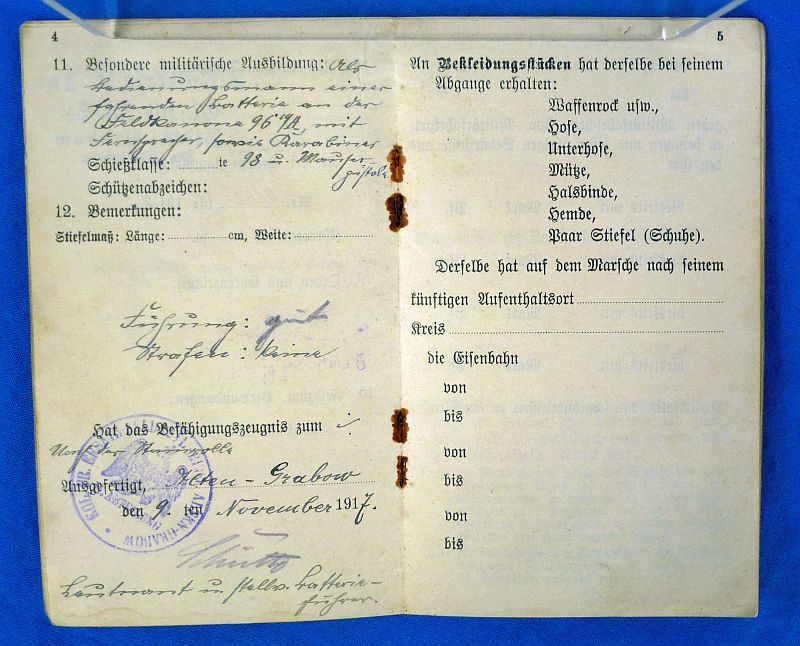 4
11. Besondere militärische Ausbildung: Als
Bedienungsmann einer
fahrenden Batterie an der
Feldkanone 96 n/A, mit
Fernsprecher, sowie Karabiner
Schießklasse: te 98 u. Mauser-
pistole
Schützenabzeichen:
12. Bemerkungen:
Stiefelmaß: Länge: cm, Weite:
Führung: gut
Strafen: keine
Hat das Befähigungszeugnis zum
der Stammrolle
Ausgefertigt, Alten-Grabow
den 9. ten November 1917.
Schütte
Leutnant u. stellv. Batterie-
führer.
5
An Bekleidungsstücken hat derselbe bei seinem
Abgange erhalten:
Waffenrock usw.,
Hose,
Unterhose,
Mütze,
Halsbinde,
Hemde,
Paar Stiefel (Schuhe).
Derselbe hat auf dem Marsche nach seinem
künftigen Aufenthaltsort
Kreis
die Eisenbahn
von
bis
von
bis
von
bis